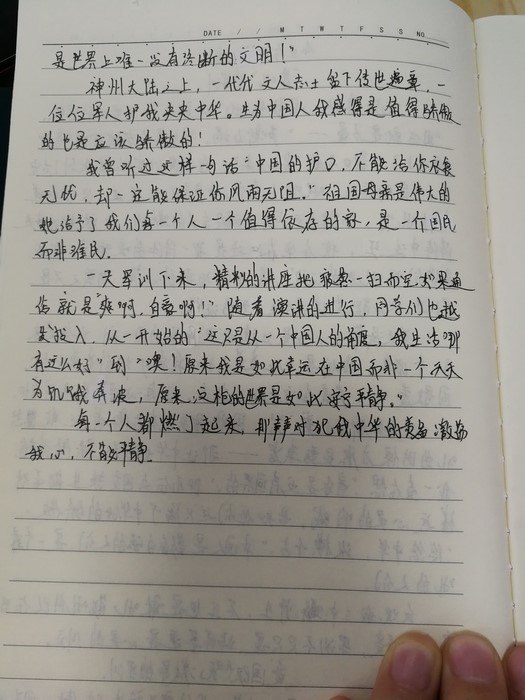 DATE / / M T W T F S S NO.
是世界上唯一没有终断的文明！"
神州大陆之上，一代代文人志士留下传世遗章，一
位位军人护我泱泱中华。生为中国人我感得是值得骄傲
的也是应该骄傲的！
我曾听过这样一句话"中国的护口，不能给你衣食
无忧，却一定能保证你风雨无阻。"祖国母亲是伟大的
她给予了我们每一个人一个值得依存的家，是一个国民
而非难民.
一天军训下来，精彩的讲座把疲惫一扫而空
就是爽啊，白衰啊！"随着演讲的进行，同学们也越
发投入，从一开始的"这只是从一个中国人的角度，我生活哪
有这么好"到"噢！原来我是如此幸运在中国而非一个天天
为饥饿奔波，原来，这相的世界是如此平静。"
每一个人都燃了起来，那声声对我中华的激荡
我心，不能平静.